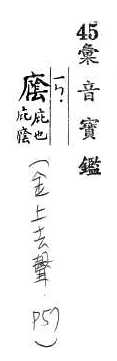 45彙音寶鑑
廕 庇也
庇蔭
(金上去聲. P57)